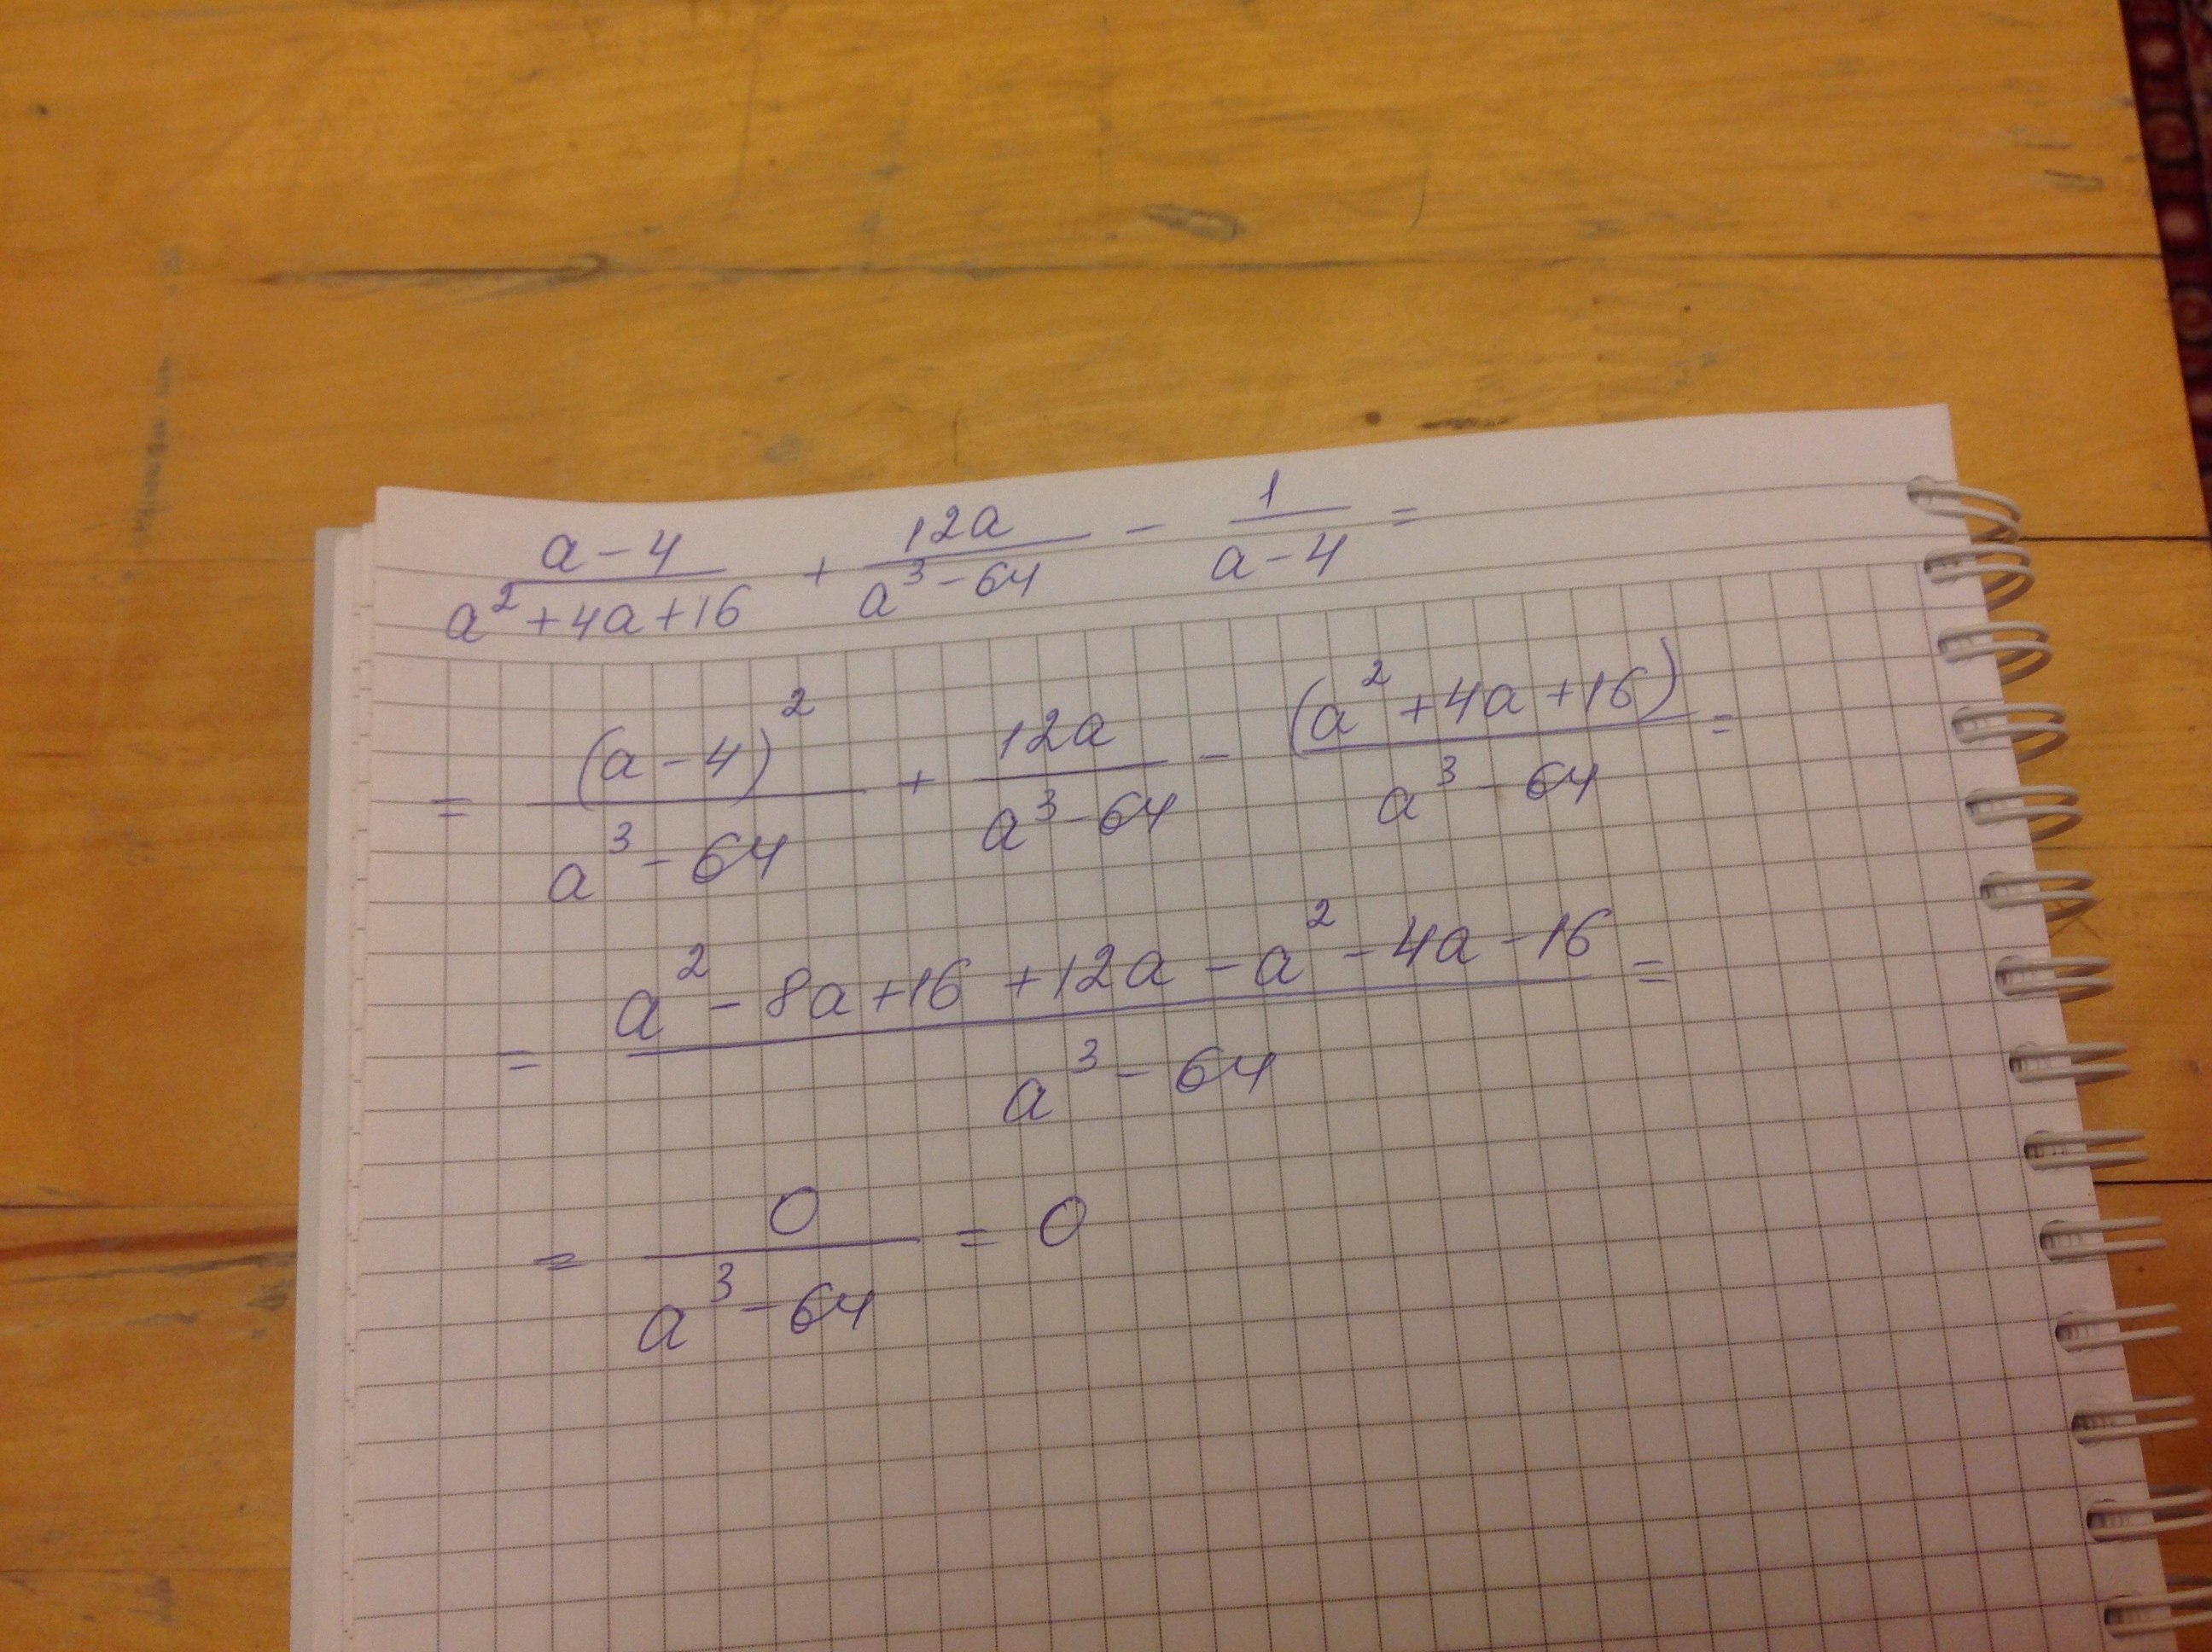 (a-4)/(a²+4a+16) + 12a/(a³-64) - 1/(a-4) =
= (a-4)²/(a³-64) + 12a/(a³-64) - (a²+4a+16)/(a³-64) =
= (a²-8a+16+12a-a²-4a-16)/(a³-64) =
= 0/(a³-64) = 0